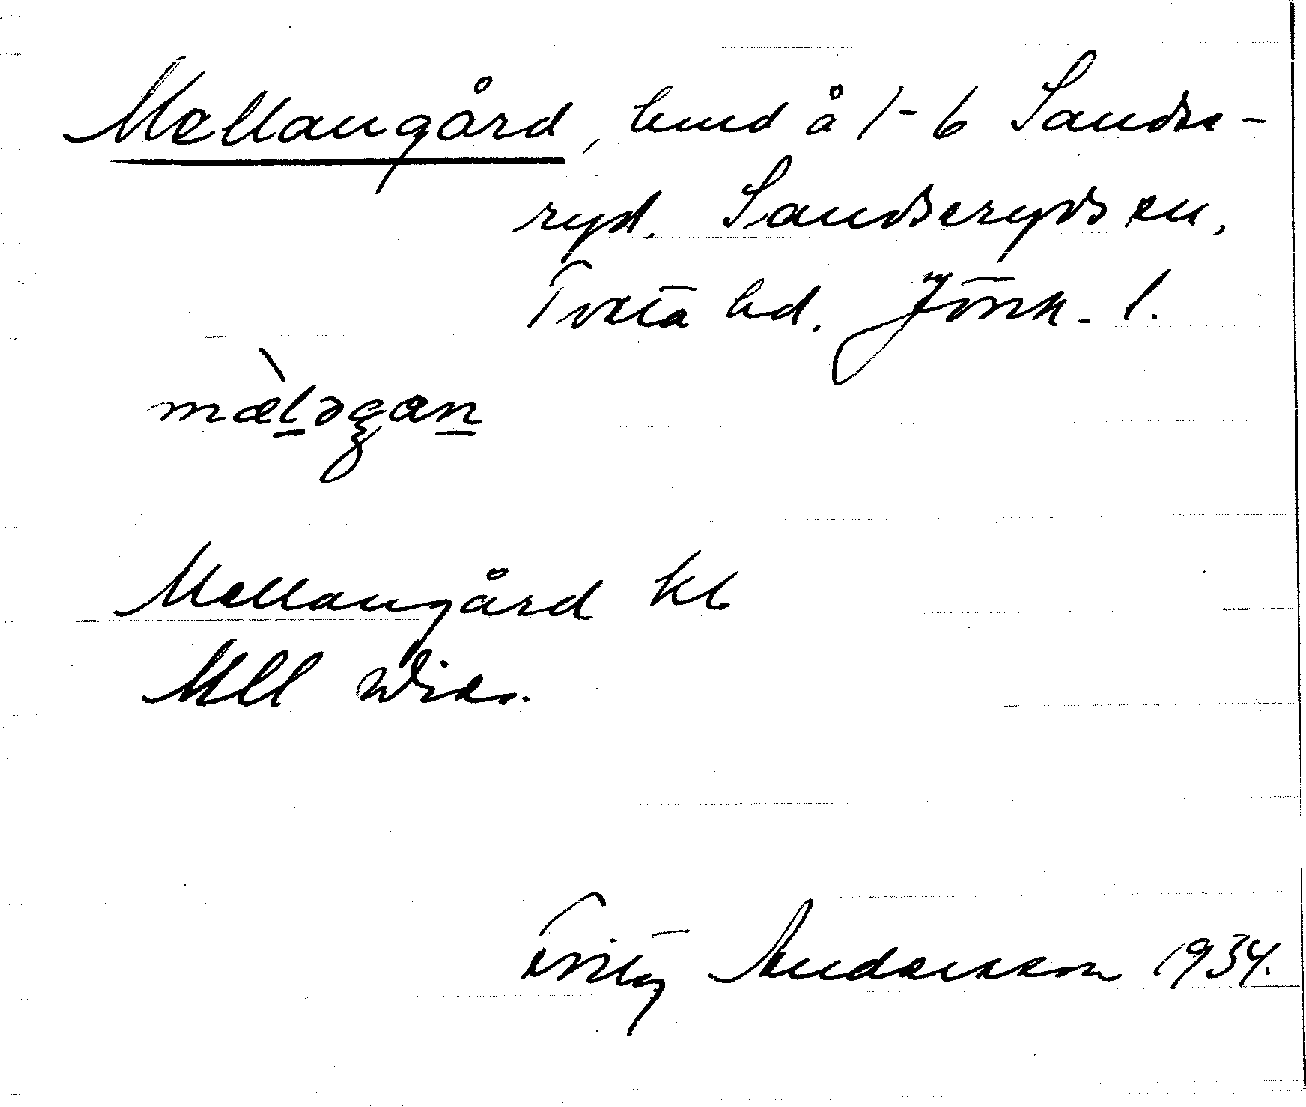 Mellangård, hmd å 1-6 Sandse-
ryd. Sandseryds sn,
Tveta hd. Jönk. l.
mæ̀l̠əgan̠
Mellangård kb
Mll
Fritz Andersson 1934.